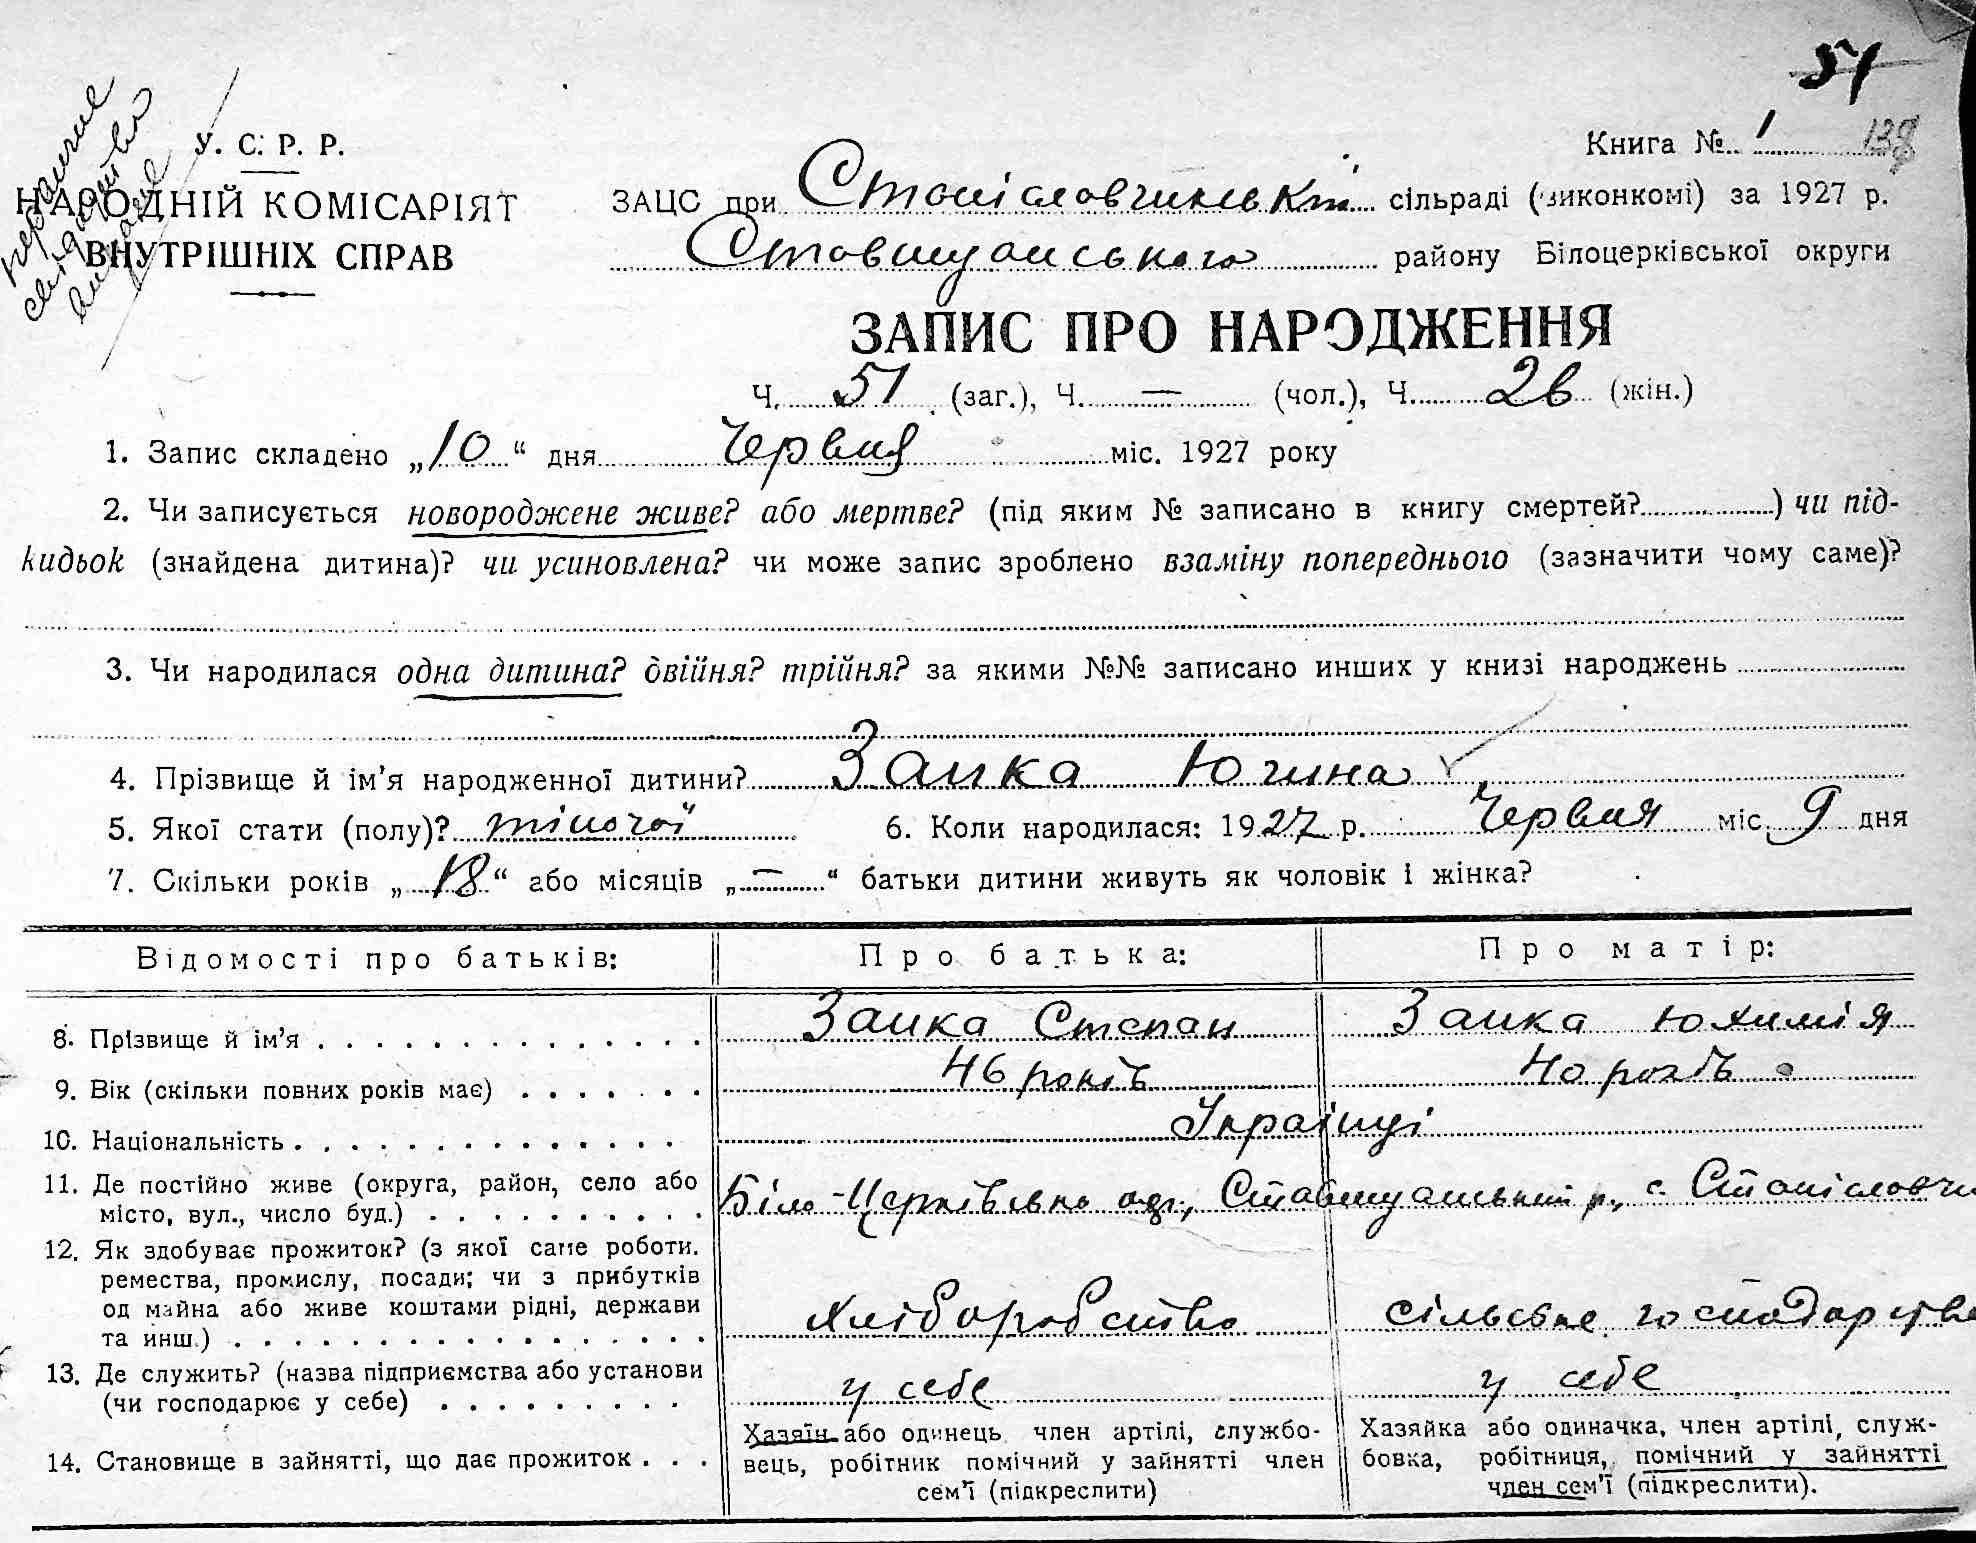 51
Книга № 1 138
У. С. Р. Р.
НАРОДНІЙ КОМІСАРІЯТ
ВНУТРІШНІХ СПРАВ
ЗАЦС при Станіславчинській сільраді (виконкомі) за 1927 р.
Ставищанського району Білоцерківської округи
ЗАПИС ПРО НАРОДЖЕННЯ
Ч. 51 (заг.), Ч. — (чол.), Ч. 26 (жін.)
1. Запис складено „10“ дня Червня міс. 1927 року
2. Чи записується новороджене живе? або мертве? (під яким № записано в книгу смертей? ) чи під-
кидьок (знайдена дитина)? чи усиновлена? чи може запис зроблено взаміну попереднього (зазначити чому саме)?
3. Чи народилася одна дитина? двійня? трійня? за якими №№ записано инших у книзі народжень
4. Прізвище й ім’я народженної дитини? Заика Югина
5. Якої стати (полу)? жіночої 6. Коли народилася: 1927 р. Червня міс. 9 дня
7. Скільки років „18“ або місяців „—“ батьки дитини живуть як чоловік і жінка?
Відомості про батьків: Про батька: Про матір:
8. Прізвище й ім’я Заика Степан Заика Юхимія
9. Вік (скільки повних років має) 46 років 40 років
10. Національність Українці
11. Де постійно живе (округа, район, село або
місто, вул., число буд.) Біло-Церківсько окр., Ставищанський р., с. Станіславчи
12. Як здобуває прожиток? (з якої саме роботи,
ремества, промислу, посади; чи з прибутків
од майна або живе коштами рідні, держави
та инш.) Хліборобство сільське господарство
13. Де служить? (назва підприємства або установи
(чи господарює у себе) у себе у себе
14. Становище в зайнятті, що дає прожиток
Хазяїн або одинець, член артілі, службо-
вець, робітник помічний у зайнятті член
сем’ї (підкреслити)
Хазяйка або одиначка, член артілі, служ-
бовка, робітниця, помічний у зайнятті
член сем’ї (підкреслити).